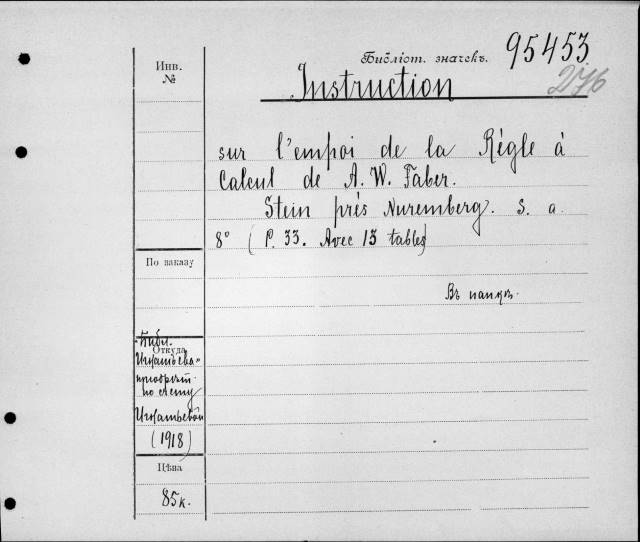 Инв.
№
Библіот. значекъ.
95453
276
Instruction
sur l'emploi de la Règle à
Calcul de A. W. Faber.
Stein près Nuremberg. S. a.
8° (P. 33. Avec 13 tables)
По заказу
Въ папкѣ.
Откуда
"Библ.
Игнатьева"
приобрѣт.
по счету
Игнатьевой
(1918)
Цѣна
85к.